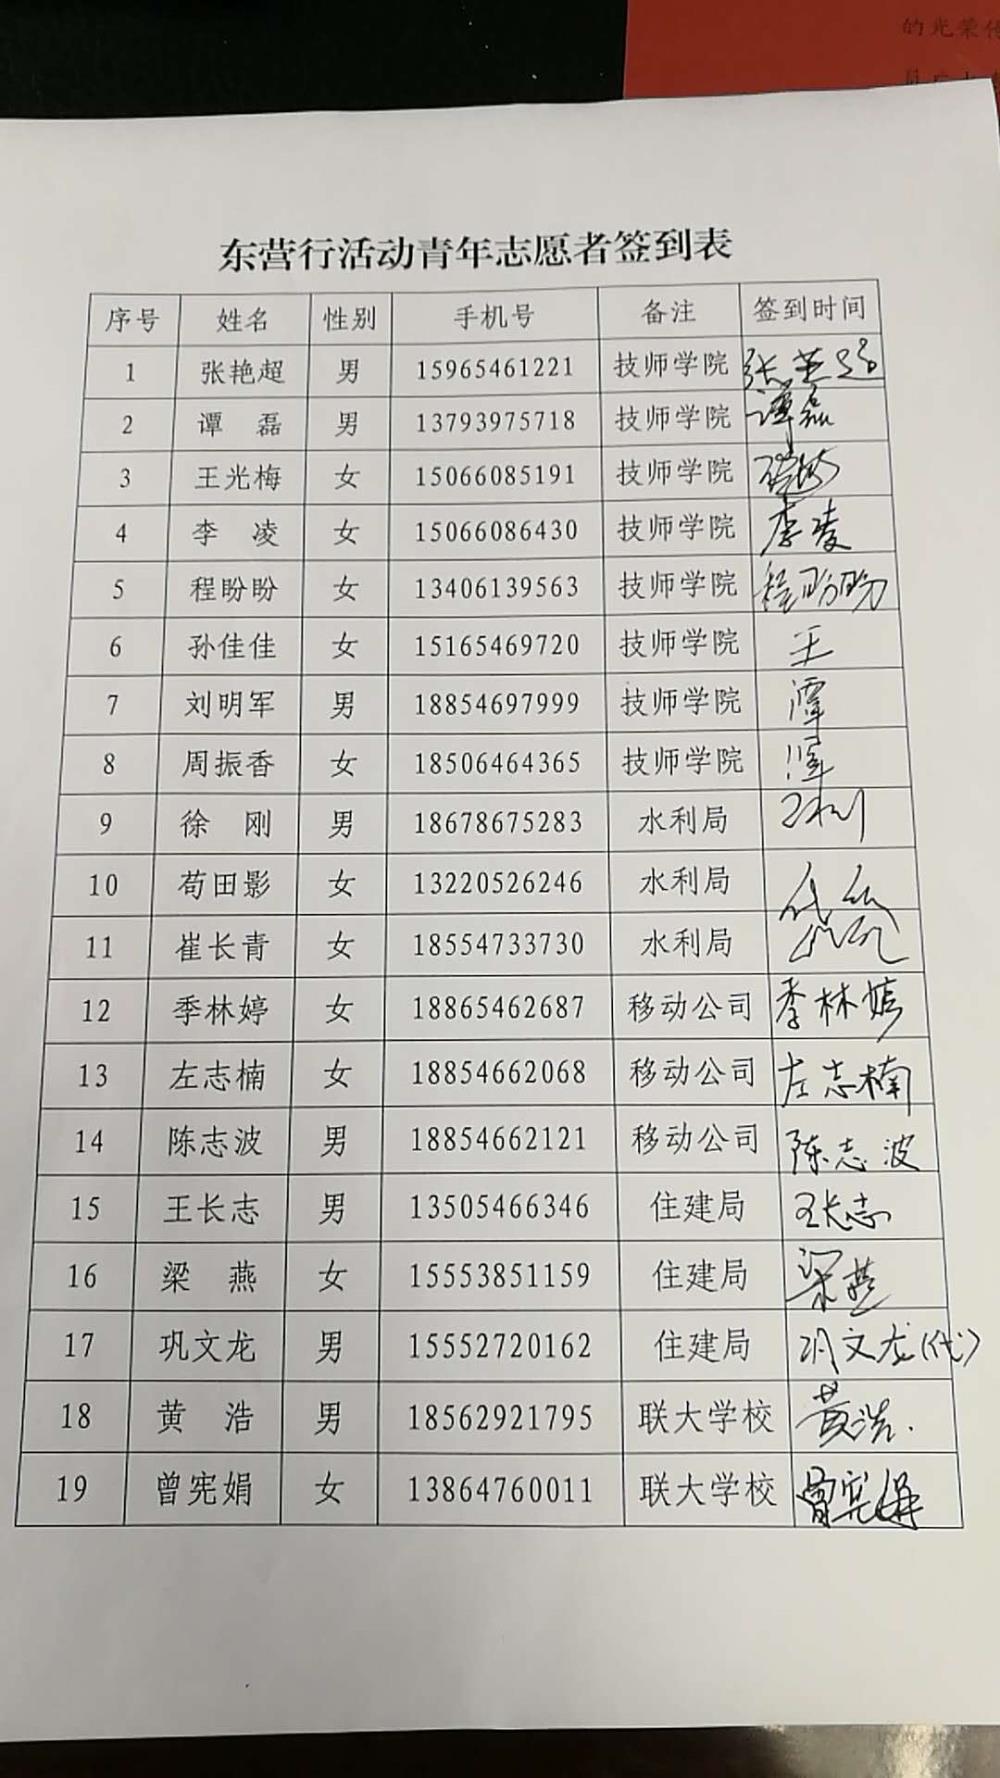 的光荣传
东营行活动青年志愿者签到表
序号 姓名 性别 手机号 备注 签到时间
1 张艳超 男 15965461221 技师学院 张艳超
2 谭 磊 男 13793975718 技师学院 谭磊
3 王光梅 女 15066085191 技师学院
4 李 凌 女 15066086430 技师学院 李凌
5 程盼盼 女 13406139563 技师学院 程盼盼
6 孙佳佳 女 15165469720 技师学院 王
7 刘明军 男 18854697999 技师学院 谭
8 周振香 女 18506464365 技师学院 谭
9 徐 刚 男 18678675283 水利局
10 苟田影 女 13220526246 水利局
11 崔长青 女 18554733730 水利局
12 季林婷 女 18865462687 移动公司 季林婷
13 左志楠 女 18854662068 移动公司 左志楠
14 陈志波 男 18854662121 移动公司 陈志波
15 王长志 男 13505466346 住建局 王长志
16 梁 燕 女 15553851159 住建局 梁燕
17 巩文龙 男 15552720162 住建局 巩文龙(代)
18 黄 浩 男 18562921795 联大学校 黄浩.
19 曾宪娟 女 13864760011 联大学校 曾宪娟